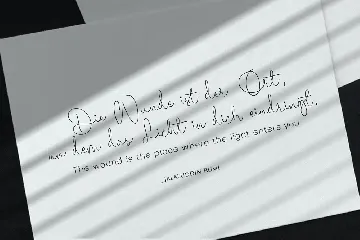 Die Wunde ist der Ort,
wo dem das Licht in dich eindringt,
The wound is the place where the light enters you
JALALUDDIN RUMI